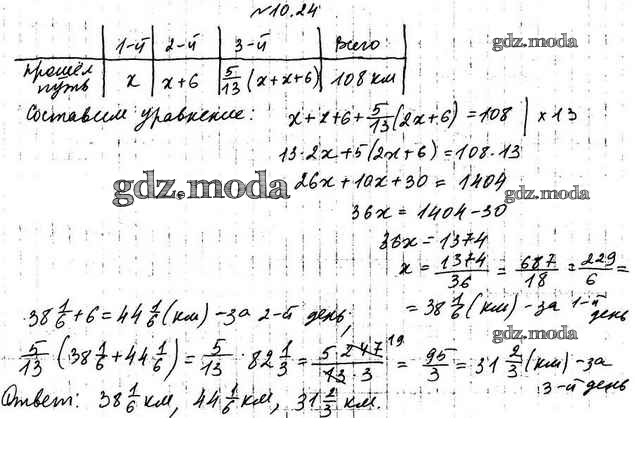 №10.24
1-й 2-й 3-й Всего
gdz.moda
Прошёл путь x x+6 5/13 (x+x+6) 108 км
Составим уравнение: x+x+6+5/13(2x+6)=108 | ×13
13·2x+5(2x+6)=108·13
gdz.moda 26x+10x+30=1404 gdz.moda
36x=1404-30
36x=1374
x=1374/36=687/18=229/6=
38 1/6+6=44 1/6(км)-за 2-й день; =38 1/6(км)-за 1-й день
gdz.moda
5/13(38 1/6+44 1/6)=5/13·82 1/3=5 247 19/13 3=95/3=31 2/3(км)-за 3-й день
Ответ: 38 1/6 км, 44 1/6 км, 31 2/3 км.